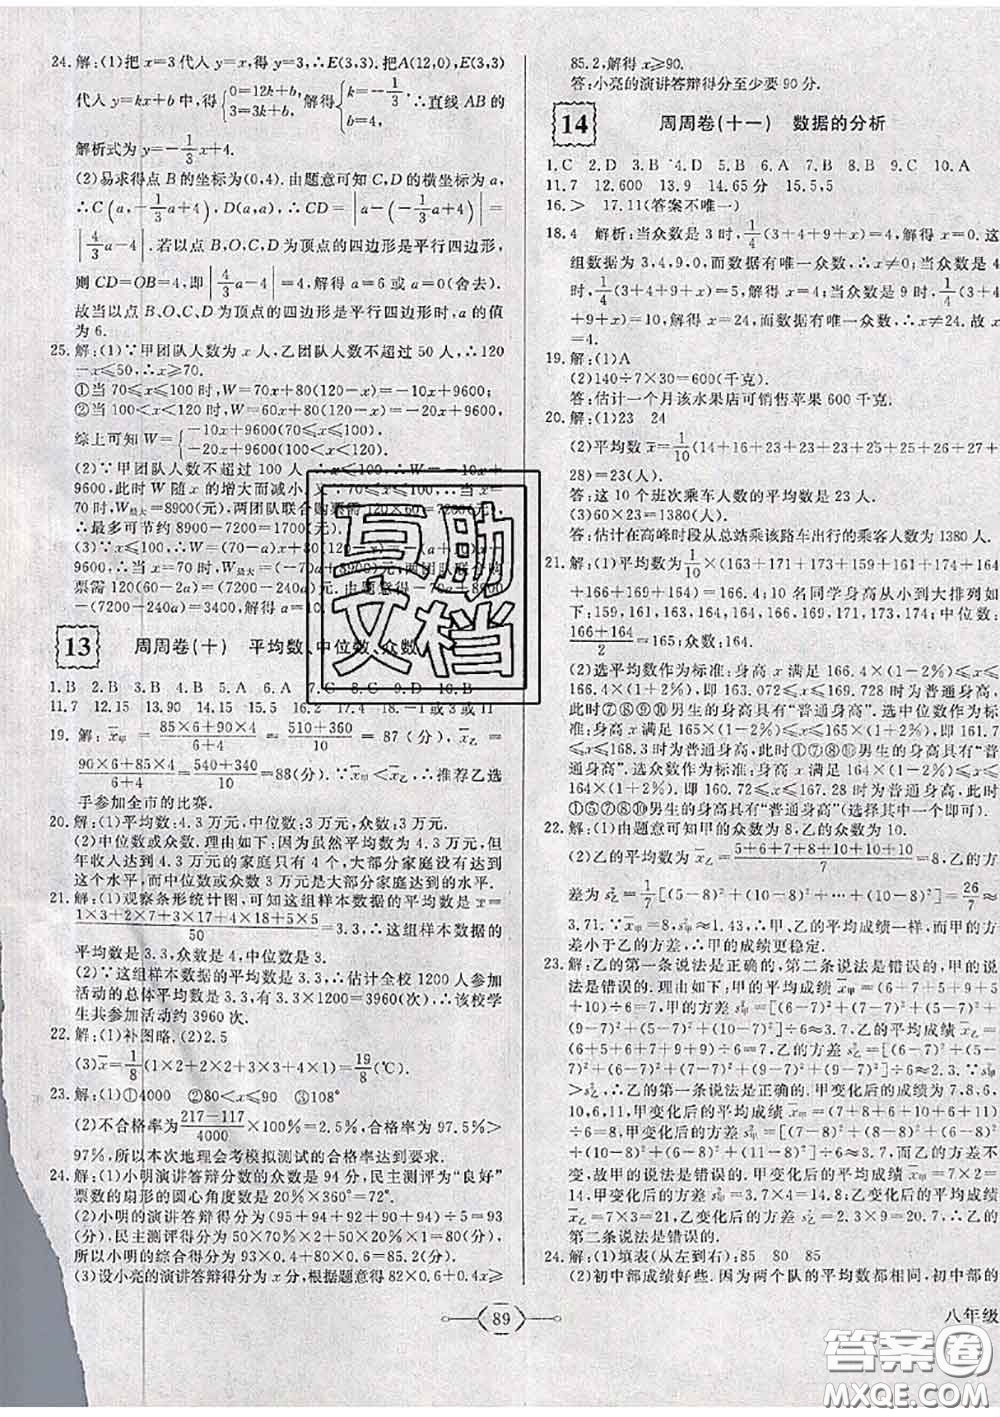 24.解:(1)把x=3代入y=x,得y=3,∴E(3,3).把A(12,0),E(3,3)
代入y=kx+b中,得{0=12k+b, 3=3k+b, 解得{k=-1/3, ∴直线AB的
解析式为y=-1/3x+4.
(2)易求得点B的坐标为(0,4).由题意可知C,D的横坐标为a,
∴C(a,-1/3a+4),D(a,a),∴CD=|a-(-1/3a+4)|=
|4/3a-4|.若以B,O,C,D为顶点的四边形是平行四边形,
则CD=OB=4,即|4/3a-4|=4,解得a=6或a=0(舍去).
故当以点B,O,C,D为顶点的四边形是平行四边形时,a的值
为6.
25.解:(1)∵甲团队人数为x人,乙团队人数不超过50人,∴120
-x≤50,∴x≥70.
①当70≤x≤100时,W=70x+80(120-x)=-10x+9600;
②当100<x<120时,W=60x+80(120-x)=-20x+9600,
综上可知W={-10x+9600(70≤x≤100), -20x+9600(100<x<120).
(2)∵甲团队人数不超过100人,∴x≤100,∴W=-10x+
9600,此时W随x的增大而减小.又∵70≤x≤100,∴当x=
70时,W最大=8900(元).两团队联合购票需120×60=7200(元),
∴最多可节约8900-7200=1700(元).
(3)∵x≤100,∴W=(70-a)x+80(120-x)=-(a+10)x+
9600,∴x=70时,W最大=-70a+8900(元),两团队联合购
票需120(60-2a)=7200-240a(元).由题意得-70a+8900
-(7200-240a)=3400,解得a=10.
13 周周卷(十) 平均数、中位数、众数
1.B 2.B 3.B 4.D 5.A 6.A 7.C 8.C 9.D 10.B
11.7 12.15 13.90 14.15 15.5 16.2 17.4 18.-1或3或11
19.解:x̄甲=(85×6+90×4)/(6+4)=(510+360)/10=87(分),x̄乙=
(90×6+85×4)/(6+4)=(540+340)/10=88(分).∵x̄甲<x̄乙,∴推荐乙选
手参加全市的比赛.
20.解:(1)平均数:4.3万元,中位数:3万元,众数:3万元.
(2)中位数或众数.理由如下:因为虽然平均数为4.3万元,但
年收入达到4.3万元的家庭只有4个,大部分家庭没有达到
这个水平,而中位数或众数3是大部分家庭达到的水平.
21.解:(1)观察条形统计图,可知这组样本数据的平均数是x̄=
(1×3+2×7+3×17+4×18+5×5)/50=3.3,∴这组样本数据的
平均数是3.3,众数是4,中位数是3.
(2)∵这组样本数据的平均数是3.3,∴估计全校1200人参加
活动的总体平均数是3.3,有3.3×1200=3960(次),∴该校学
生共参加活动约3960次.
22.解:(1)补图略.(2)2.5
(3)x̄=1/8(1×2+2×2+3×3+4×1)=19/8(℃).
23.解:(1)①4000 ②80<x≤90 ③108°
(2)不合格率为(217-117)/4000×100%=2.5%,合格率为97.5%>
97%,所以本次地理会考模拟测试的合格率达到要求.
24.解:(1)小明演讲答辩分数的众数是94分,民主测评为“良好”
票数的扇形的圆心角度数是20%×360°=72°.
(2)小明的演讲答辩得分为(95+94+92+90+94)÷5=93
(分),民主测评得分为50×70%×2+50×20%×1=80(分),
所以小明的综合得分为93×0.4+80×0.6=85.2(分).
(3)设小亮的演讲答辩得分为x分,根据题意得82×0.6+0.4x≥
85.2,解得x≥90.
答:小亮的演讲答辩得分至少要90分.
14 周周卷(十一) 数据的分析
1.C 2.D 3.B 4.D 5.B 6.A 7.B 8.B 9.C 10.A
11.7 12.600 13.9 14.65分 15.5,5
16.> 17.11(答案不唯一)
18.4 解析:当众数是3时,1/4(3+4+9+x)=4,解得x=0.这
组数据为3,4,9,0,而数据有唯一众数,∴x=0舍去;当众数是4
时,1/4(3+4+9+x)=5,解得x=4;当众数是9时,1/4(3+4
+9+x)=10,解得x=24,而数据有唯一众数,∴x=24舍去.故
x=4.
19.解:(1)A
(2)140÷7×30=600(千克).
答:估计一个月该水果店可销售苹果600千克.
20.解:(1)23 24
(2)平均数x̄=1/10(14+16+23+23+23+25+25+26+27+
28)=23(人).
答:这10个班次乘车人数的平均数是23人.
(3)60×23=1380(人).
答:估计在高峰时段从总站乘该路车出行的乘客人数为1380人.
21.解:(1)平均数为1/10×(163+171+173+159+161+174+164
+166+169+164)=166.4;10名同学身高从小到大排列如
下:159,161,163,164,164,166,169,171,173,174;中位数:
(166+164)/2=165;众数:164.
(2)选平均数作为标准:身高x满足166.4×(1-2%)≤x≤
166.4×(1+2%),即163.072≤x≤169.728时为普通身高,
此时⑦⑧⑨⑩男生的身高具有“普通身高”.选中位数作为标
准:身高x满足165×(1-2%)≤x≤165×(1+2%),即161.7
≤x≤168.3时为普通身高,此时①⑦⑧⑩男生的身高具有
“普通身高”.选众数作为标准:身高x满足164×(1-2%)≤x
≤164×(1+2%),即160.72≤x≤167.28时为普通身高,此时
①⑤⑦⑧⑩男生的身高具有“普通身高”(选择其中一个即可).
22.解:(1)由题意可知甲的众数为8,乙的众数为10.
(2)乙的平均数为x̄乙=(5+6+7+8+10+10+10)/7=8,乙的方
差为s²乙=1/7[(5-8)²+(6-8)²+…+(10-8)²]=26/7≈
3.71.∵x̄甲=8,s²甲≈1.43,∴甲、乙的平均成绩一样,而甲的方
差小于乙的方差,∴甲的成绩更稳定.
23.解:乙的第一条说法是正确的,第二条说法是错误的,甲的说
法是错误的.理由如下:甲的平均成绩x̄甲=(6+7+5+9+5
+10)÷6=7,甲的方差s²甲=[(6-7)²+(7-7)²+(5-7)²+
(9-7)²+(5-7)²+(10-7)²]÷6≈3.7.乙的平均成绩x̄乙=
(6+5+7+6+8+10)÷6=7,乙的方差s²乙=[(6-7)²+(5-
7)²+(7-7)²+(6-7)²+(8-7)²+(10-7)²]÷6≈2.7.∵s²甲>
s²乙,∴乙的第一条说法是正确的.甲变化后的成绩为7,8,6,
10,6,11,甲变化后的平均成绩x̄甲=(7+8+6+10+6+11)
÷6=8,甲变化后的方差s²甲=[(7-8)²+(8-8)²+(6-8)²+
(10-8)²+(6-8)²+(11-8)²]÷6≈3.7.两次方差并没有改
变,故甲的说法是错误的.甲变化后的平均成绩x̄甲=7×2=
14,甲变化后的方差s²甲=3.7×4=14.8;乙变化后的平均成绩
x̄乙=7×3=21,乙变化后的方差s²乙=2.7×9=24.3.∴乙的
第二条说法是错误的.
24.解:(1)填表(从左到右):85 80 85
(2)初中部成绩好些.因为两个队的平均数都相同,初中部的
89
八年级
互助
文档
答案圈
MXQE.COM